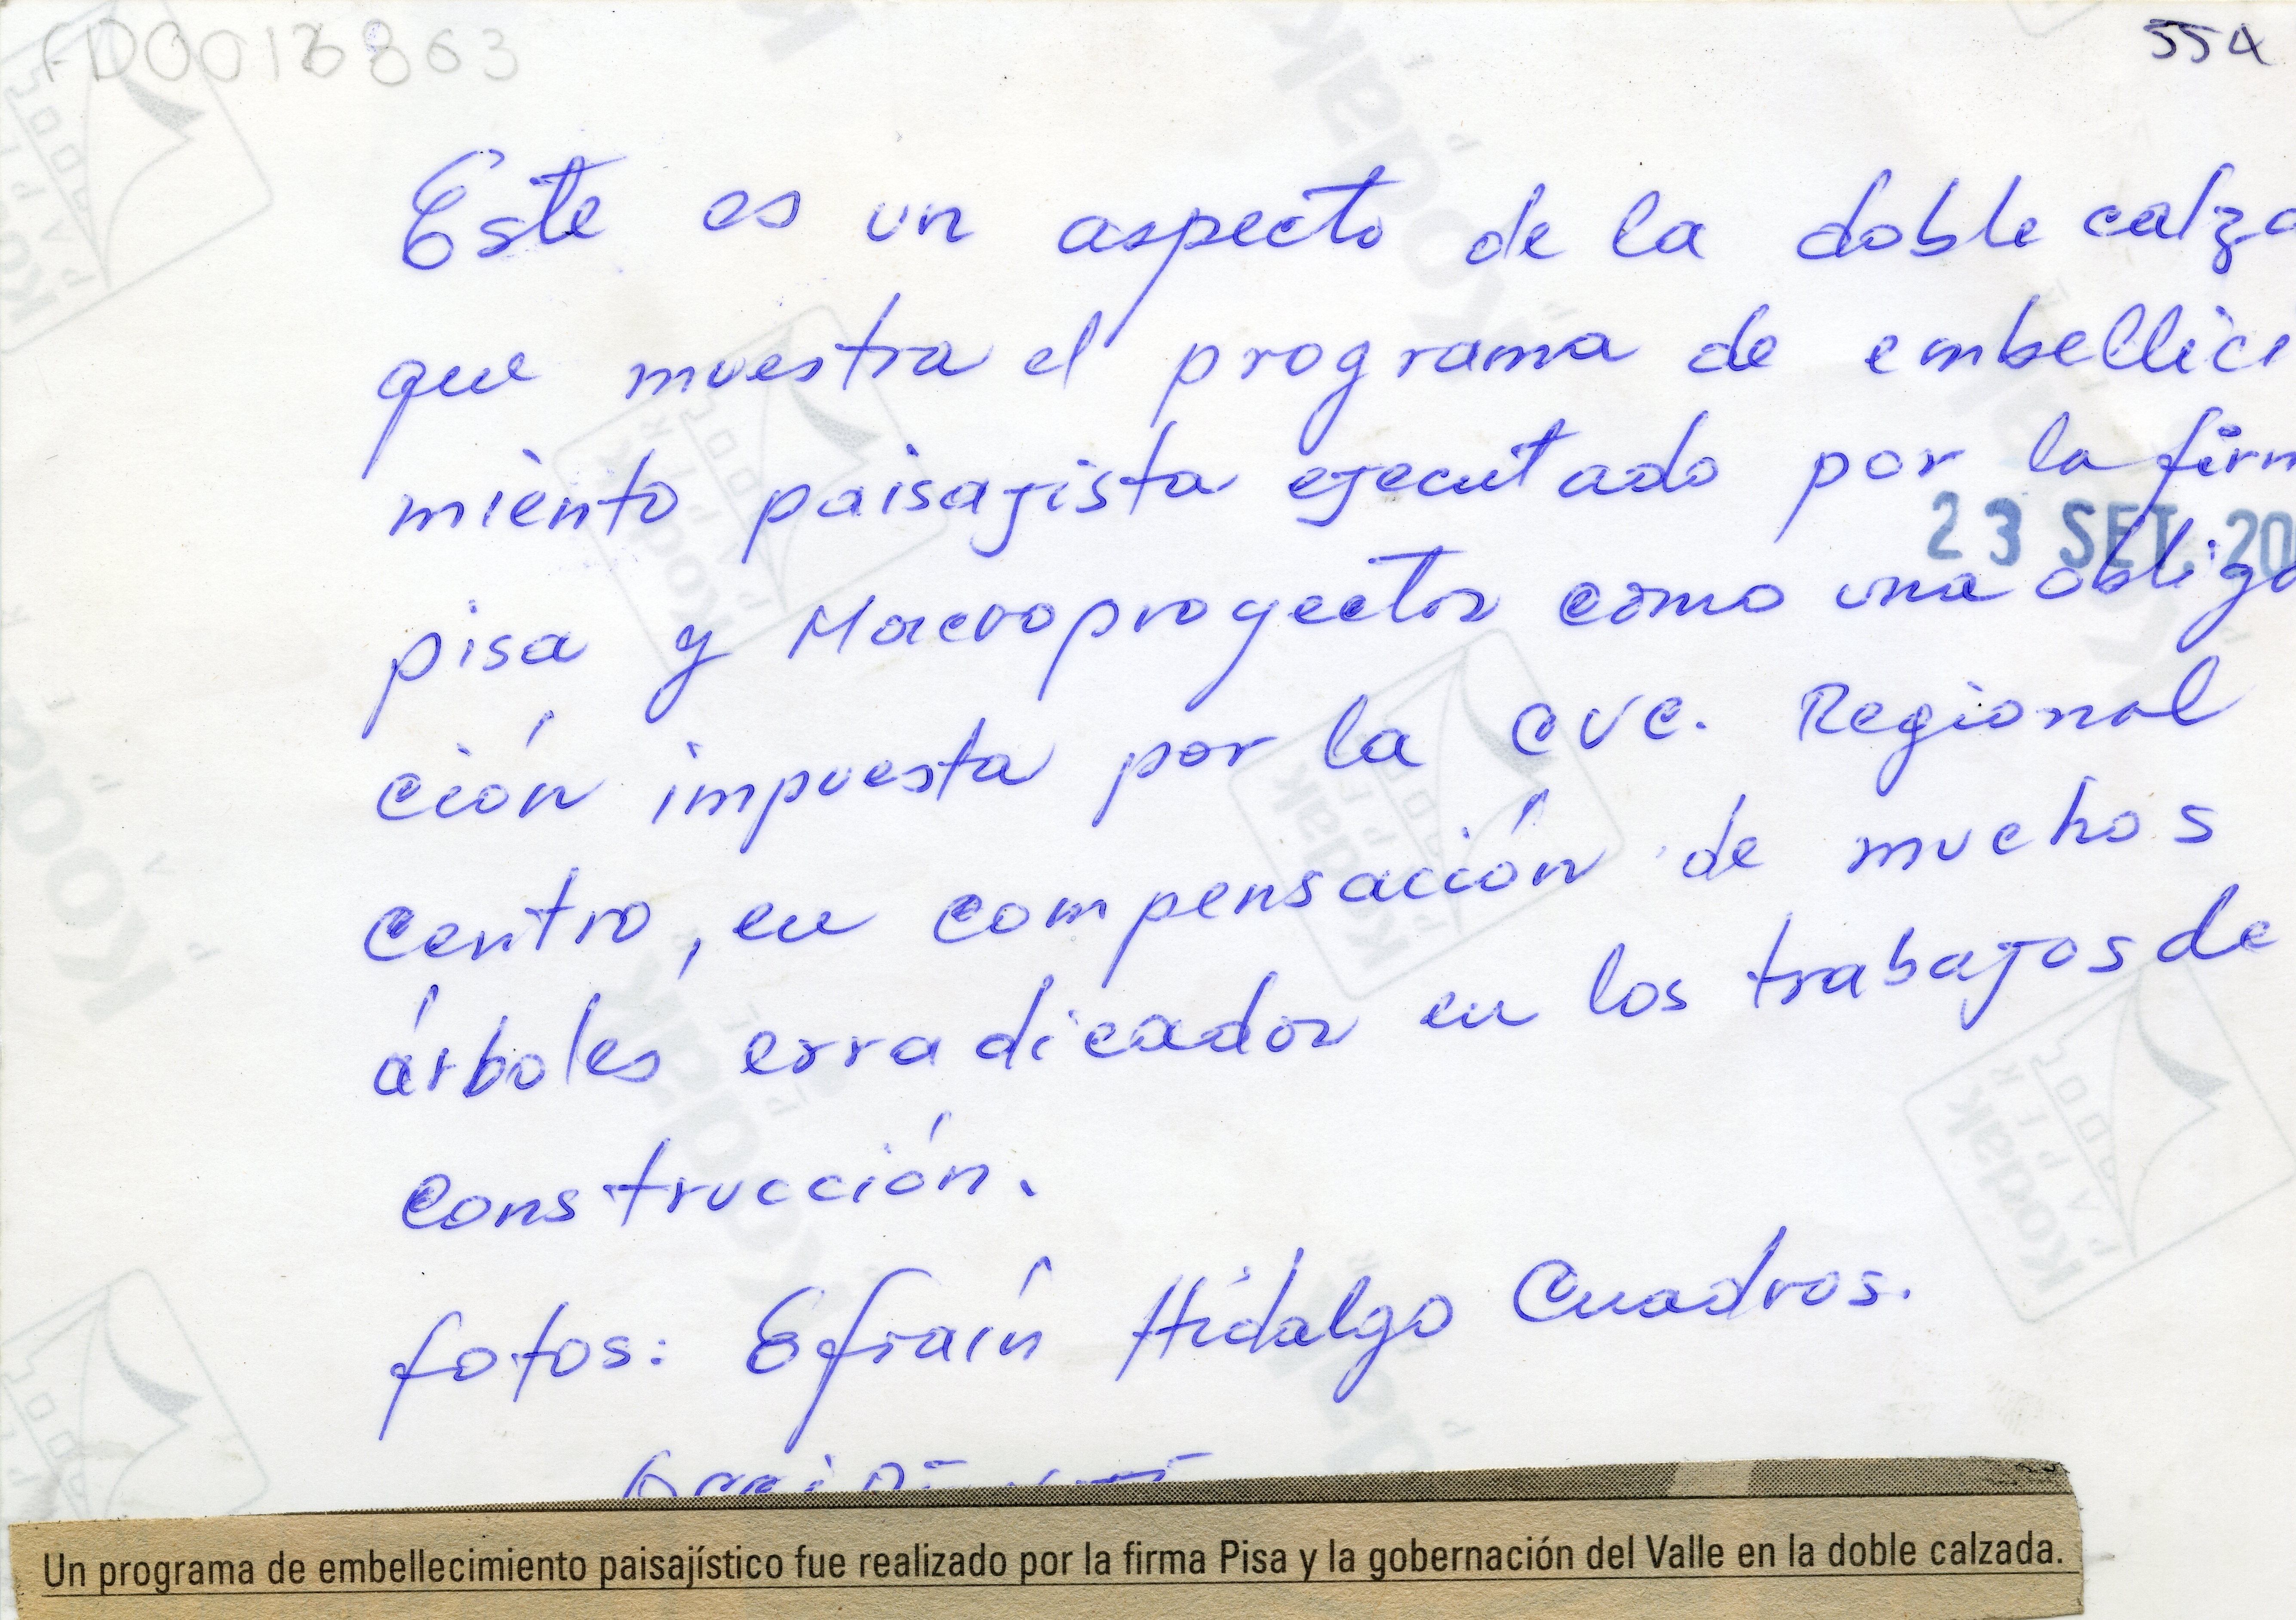 FD0013863
554
Este es un aspecto de la doble calza
que muestra el programa de embellici
miento paisajista ejecutado por la firm
23 SET. 20
pisa y Macroproyectos como una obliga
ción impuesta por la CVC. Regional
centro, en compensación de muchos
árboles erradicados en los trabajos de
construcción.
fotos: Efraín Hidalgo Cuadros.
Un programa de embellecimiento paisajístico fue realizado por la firma Pisa y la gobernación del Valle en la doble calzada.